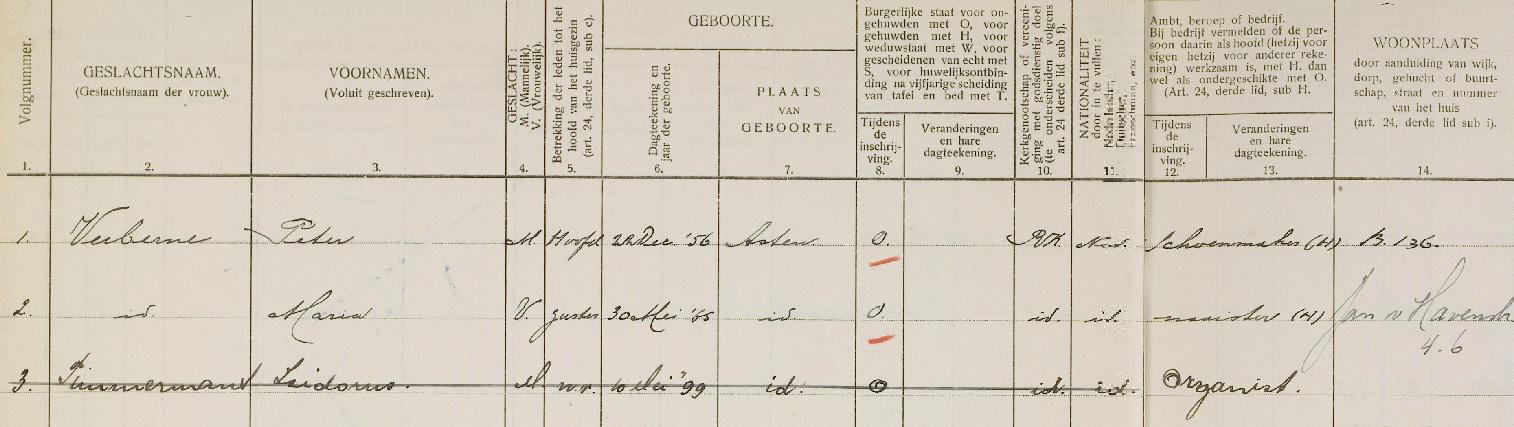 Volgnummer.
1.
GESLACHTSNAAM.
(Geslachtsnaam der vrouw).
2.
VOORNAMEN.
(Voluit geschreven).
3.
GESLACHT:
M. (Mannelijk).
V. (Vrouwelijk).
4.
Betrekking der leden tot het
hoofd van het huisgezin
(art. 24, derde lid, sub c).
5.
GEBOORTE.
Dagteekening en
jaar der geboorte.
6.
PLAATS
VAN
GEBOORTE.
7.
Burgerlijke staat voor on-
gehuwden met O, voor
gehuwden met H, voor
weduwstaat met W, voor
gescheidenen van echt met
S, voor huwelijksontbin-
ding na vijfjarige scheiding
van tafel en bed met T.
Tijdens
de
inschrij-
ving.
8.
Veranderingen
en hare
dagteekening.
9.
Kerkgenootschap of vereeni-
ging met godsdienstig doel
(te onderscheiden volgens
art. 24 derde lid sub f).
10.
NATIONALITEIT
door in te vullen:
11.
Ambt, beroep of bedrijf.
Bij bedrijf vermelden óf de per-
soon daarin als hoofd (hetzij voor
eigen hetzij voor anderer reke-
ning) werkzaam is, met H. dan
wel als ondergeschikte met O.
(Art. 24, derde lid, sub H.
Tijdens
de
inschrij-
ving.
12.
Veranderingen
en hare
dagteekening.
13.
WOONPLAATS
door aanduiding van wijk,
dorp, gehucht of buurt-
schap, straat en nummer
van het huis
(art. 24, derde lid sub i).
14.
1. Verberne Peter M. Hoofd 22 Dec '56 Asten O. RK. Ned. Schoenmaker (H) B. 136.
2. id. Maria V. zuster 30 Mei '65 id. O. id. id. naaister (H) Jan v Havenstr.
4.6
3. Timmermans Isidorus. M n.v. 10 Mei '99 id. O id. id. Organist.